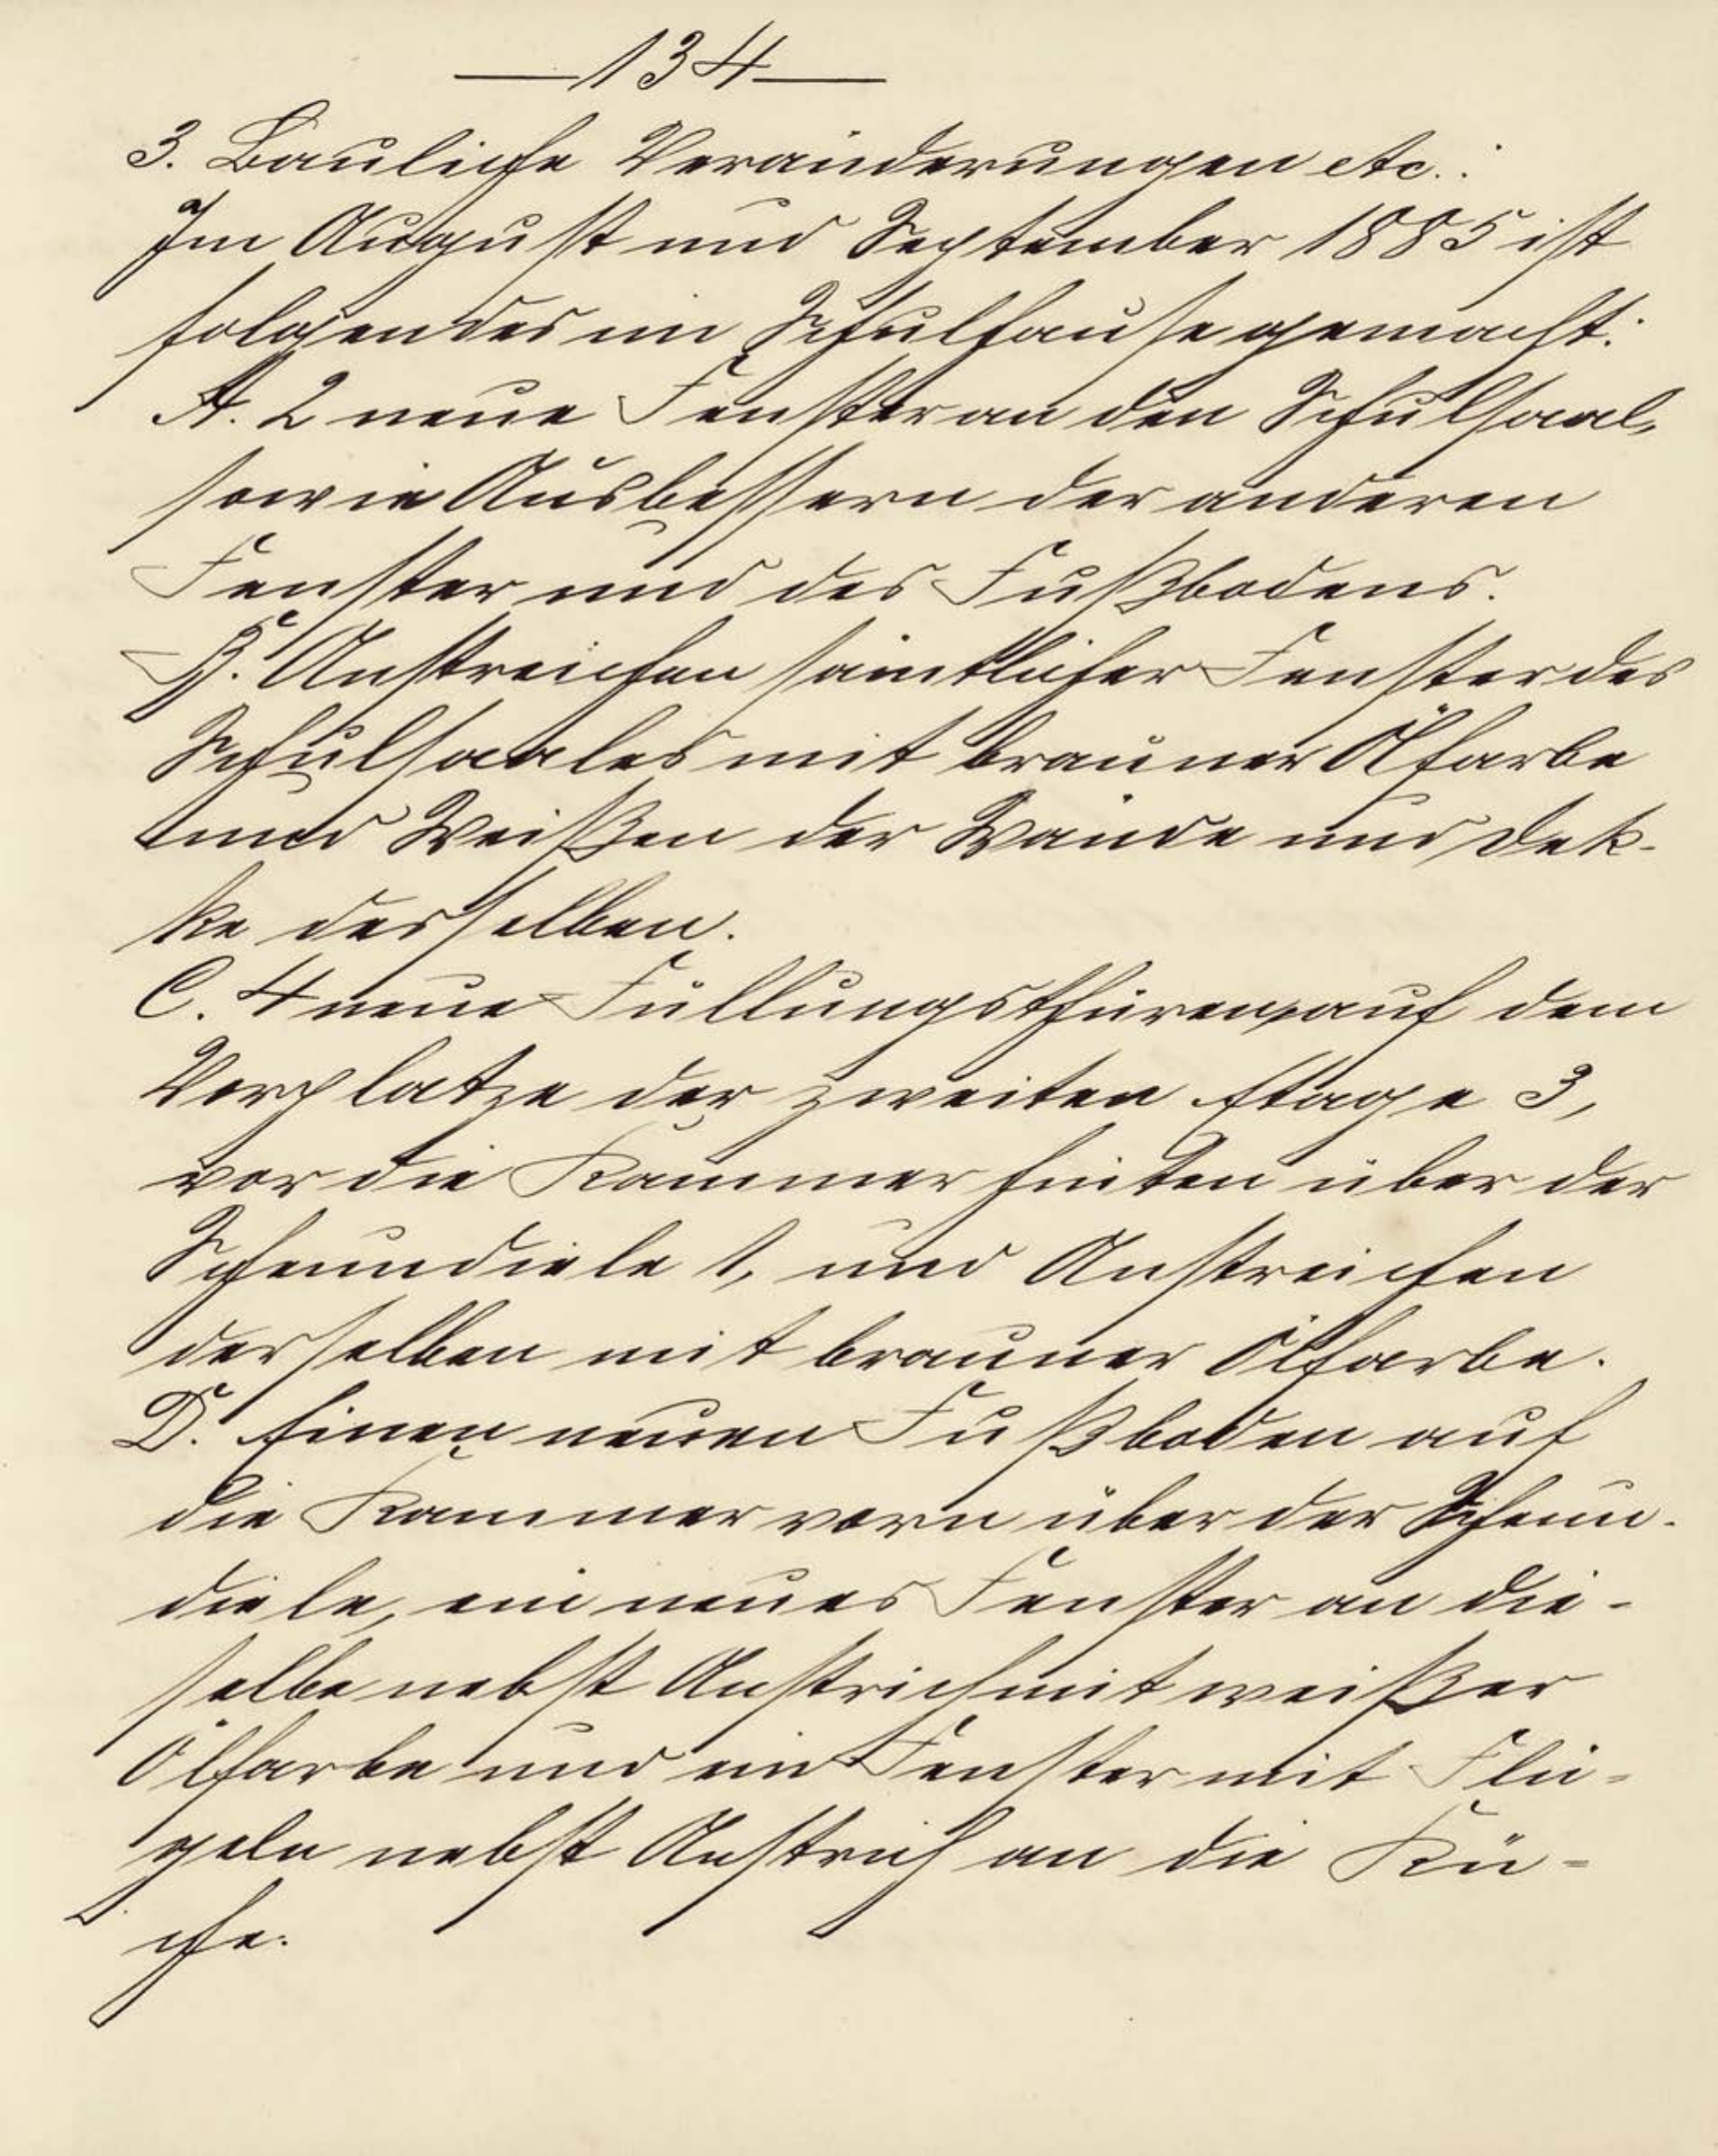 —134—
3. Bauliche Veränderungen etc.:
Im August und September 1885 ist
folgendes im Schulhause gemacht:
A. 2 neue Fenster an den Schulsaal,
sowie Ausbessern der anderen
Fenster und des Fußbodens.
B. Anstreichen sämtlicher Fenster des
Schulsaales mit brauner Ölfarbe
und Weißen der Wände und Dek-
ke desselben.
C. 4 neue Füllungsthüren, auf dem
Vorplatze der zweiten Etage 3,
vor die Kammer hinten über der
Scheundiele 1, und Anstreichen
derselben mit brauner Ölfarbe.
D. Einen neuen Fußboden auf
die Kammer vorn über der Scheun-
diele, ein neues Fenster an die-
selbe nebst Anstrich mit weißer
Ölfarbe und ein Fenster mit Flü-
geln nebst Anstrich an die Kü-
che.